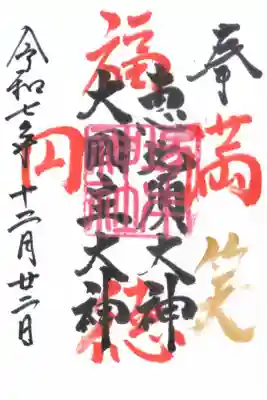 奉
笑
満
恵比須大神
福
大國主大神
徳
円
令和七年十二月廿二日